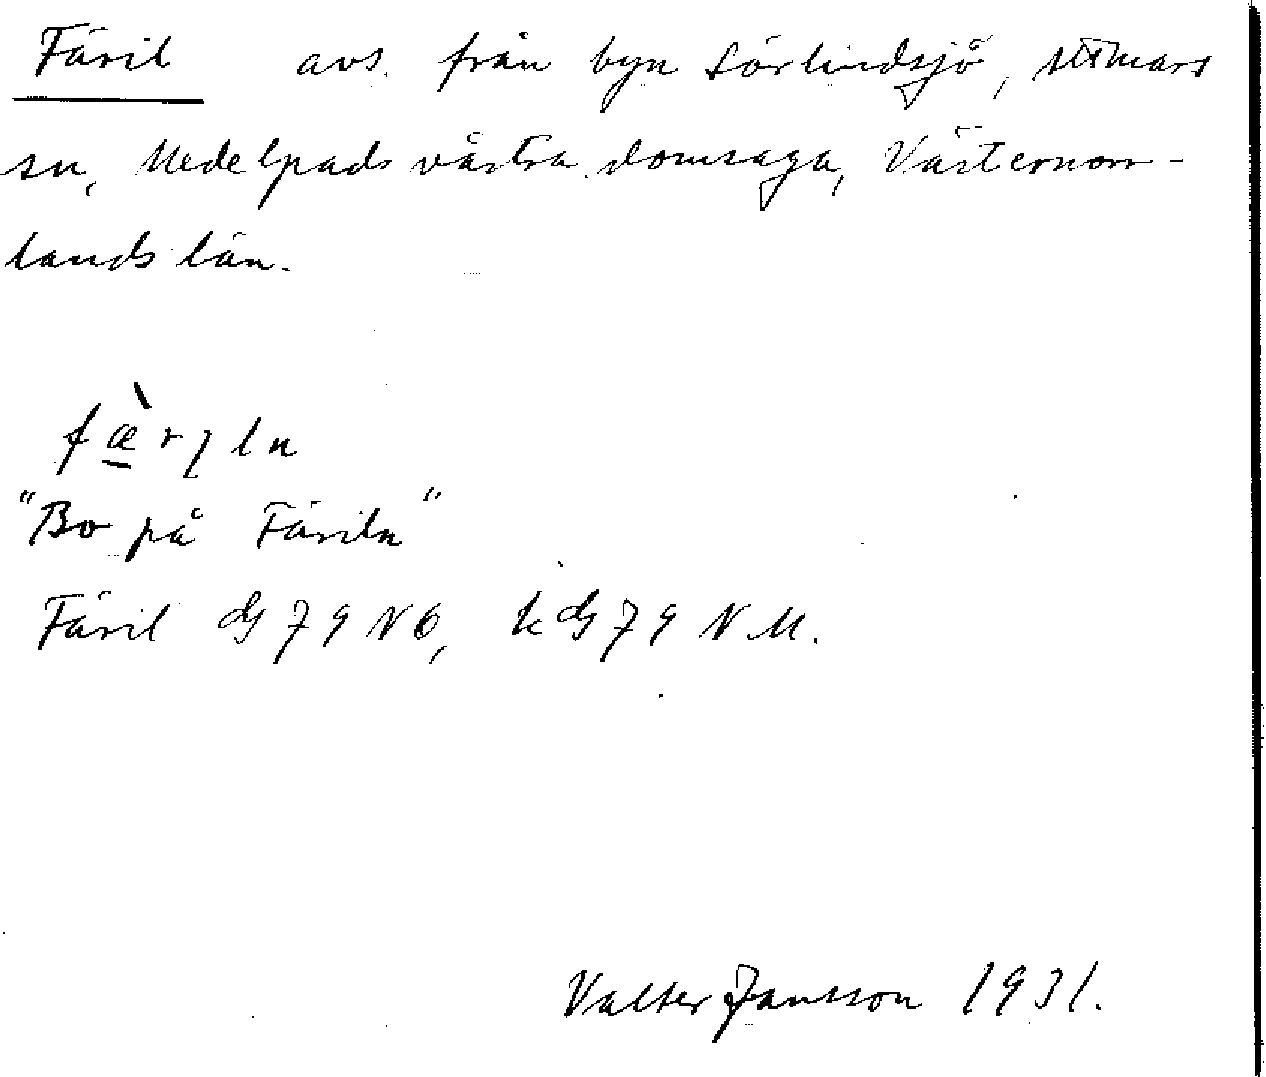 Färil avs. från byn Sörlindsjö, Attmars
sn, Medelpads västra domsaga, Västernorr-
lands län.
"Bo på Färiln"
Färil dG 79 NO, k dG 79 N.M.
Valter Jansson 1931.